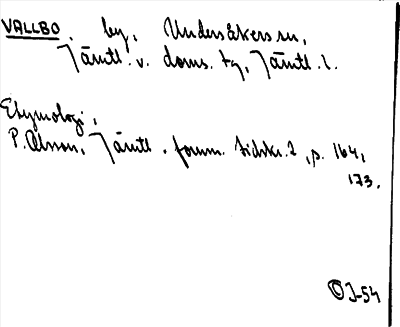 VALLBO. by, Undersåkers sn,
Jämtl. v. doms. tg, Jämtl. l.
Etymologi,
P. Olsson, Jämtl. fornm. tidskr. 2, p. 164,
173.
OJ-54